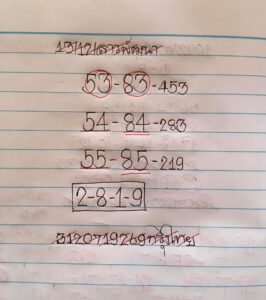 13/12/ลาวพัฒนา
53-83-453
54-84-283
55-85-219
2-8-1-9
3120719269กรุงไทย